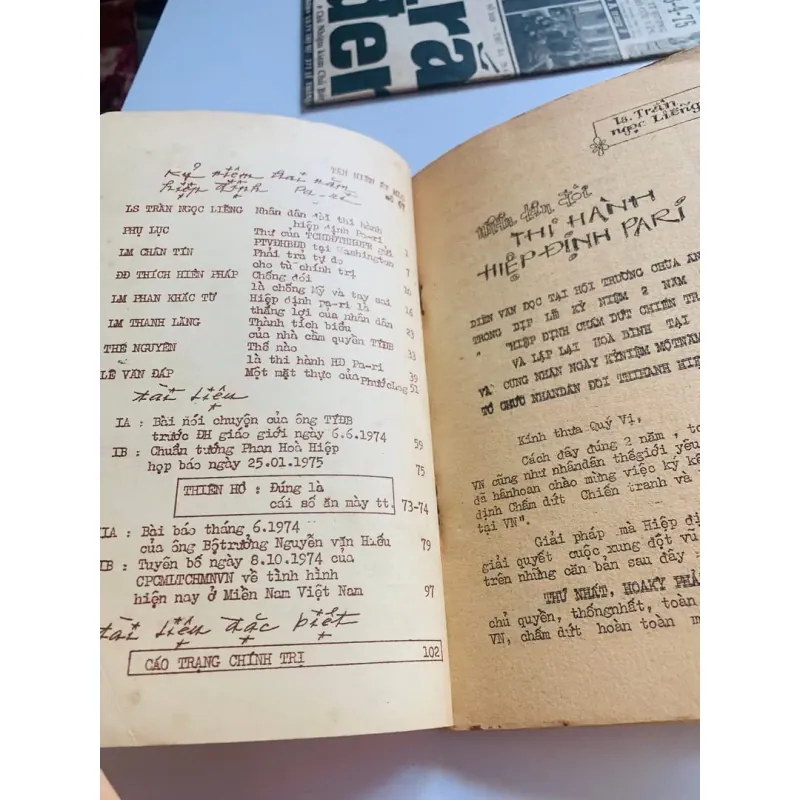 trắ
đen
5-4-75
Kỷ niệm hai năm
hiệp định Pa-ri
LS TRẦN NGỌC LIỄNG Nhân dân đòi thi hành
hiệp định Pa-ri 1
PHỤ LỤC Thư của TCNDĐTHHĐPR gửi
PTVĐHBHD tại Washington 7
LM CHÂN TÍN Phải trả tự do
cho tù chính trị 10
ĐĐ THÍCH HIỂN PHÁP Chống đói
là chống Mỹ và tay sai 16
LM PHAN KHẮC TỪ Hiệp định pa-ri là
thắng lợi của nhân dân 23
LM THANH LÃNG Thành tích biểu
của nhà cầm quyền TYĐB 33
THẾ NGUYÊN Thế nào
là thi hành HĐ Pa-ri 39
LÊ VĂN ĐÁP Một mặt thực của PhướcLong 51
tài liệu
IA : Bài nói chuyện của ông TYĐB
trước ĐH giáo giới ngày 6.6.1974 59
IB : Chuẩn tướng Phan Hoà Hiệp
họp báo ngày 25.01.1975 75
THIÊN HỔ : Đúng là
cái số ăn mày tt. 73-74
IA : Bài báo tháng 6.1974
của ông Bộtrưởng Nguyễn văn Hiếu 79
IB : Tuyên bố ngày 8.10.1974 của
CPCMLTCHMNVN về tình hình
hiện nay ở Miền Nam Việt Nam 97
tài liệu đặc biệt
CÁO TRẠNG CHÍNH TRỊ 102
ls. Trần
ngọc Liễng
nhân dân đòi
THI HÀNH
HIỆP ĐỊNH PARI
DIỄN VĂN ĐỌC TẠI HỘI TRƯỜNG CHÙA ẤN
TRONG DỊP LỄ KỶ NIỆM 2 NĂM
"HIỆP ĐỊNH CHẤM DỨT CHIẾN TR
VÀ LẬP LẠI HOÀ BÌNH TẠI
VÀ CŨNG NHÂN NGÀY KỶNIỆM MỘTNĂM
TỔ CHỨC NHANDÂN ĐÒI THIHÀNH HIỆ
Kính thưa Quý Vị,
Cách đây đúng 2 năm , to
VN cũng như nhândân thếgiới yêu
đã hânhoan chào mừng việc ký kế
định Chấm dứt Chiến tranh và
tại VN".
Giải pháp mà Hiệp đị
giải quyết cuộc xung đột vũ
trên những căn bản sau đây
THỨ NHẤT, HOAKỲ PHẢ
chủ quyền, thốngnhất, toàn
VN, chấm dứt hoàn toàn m